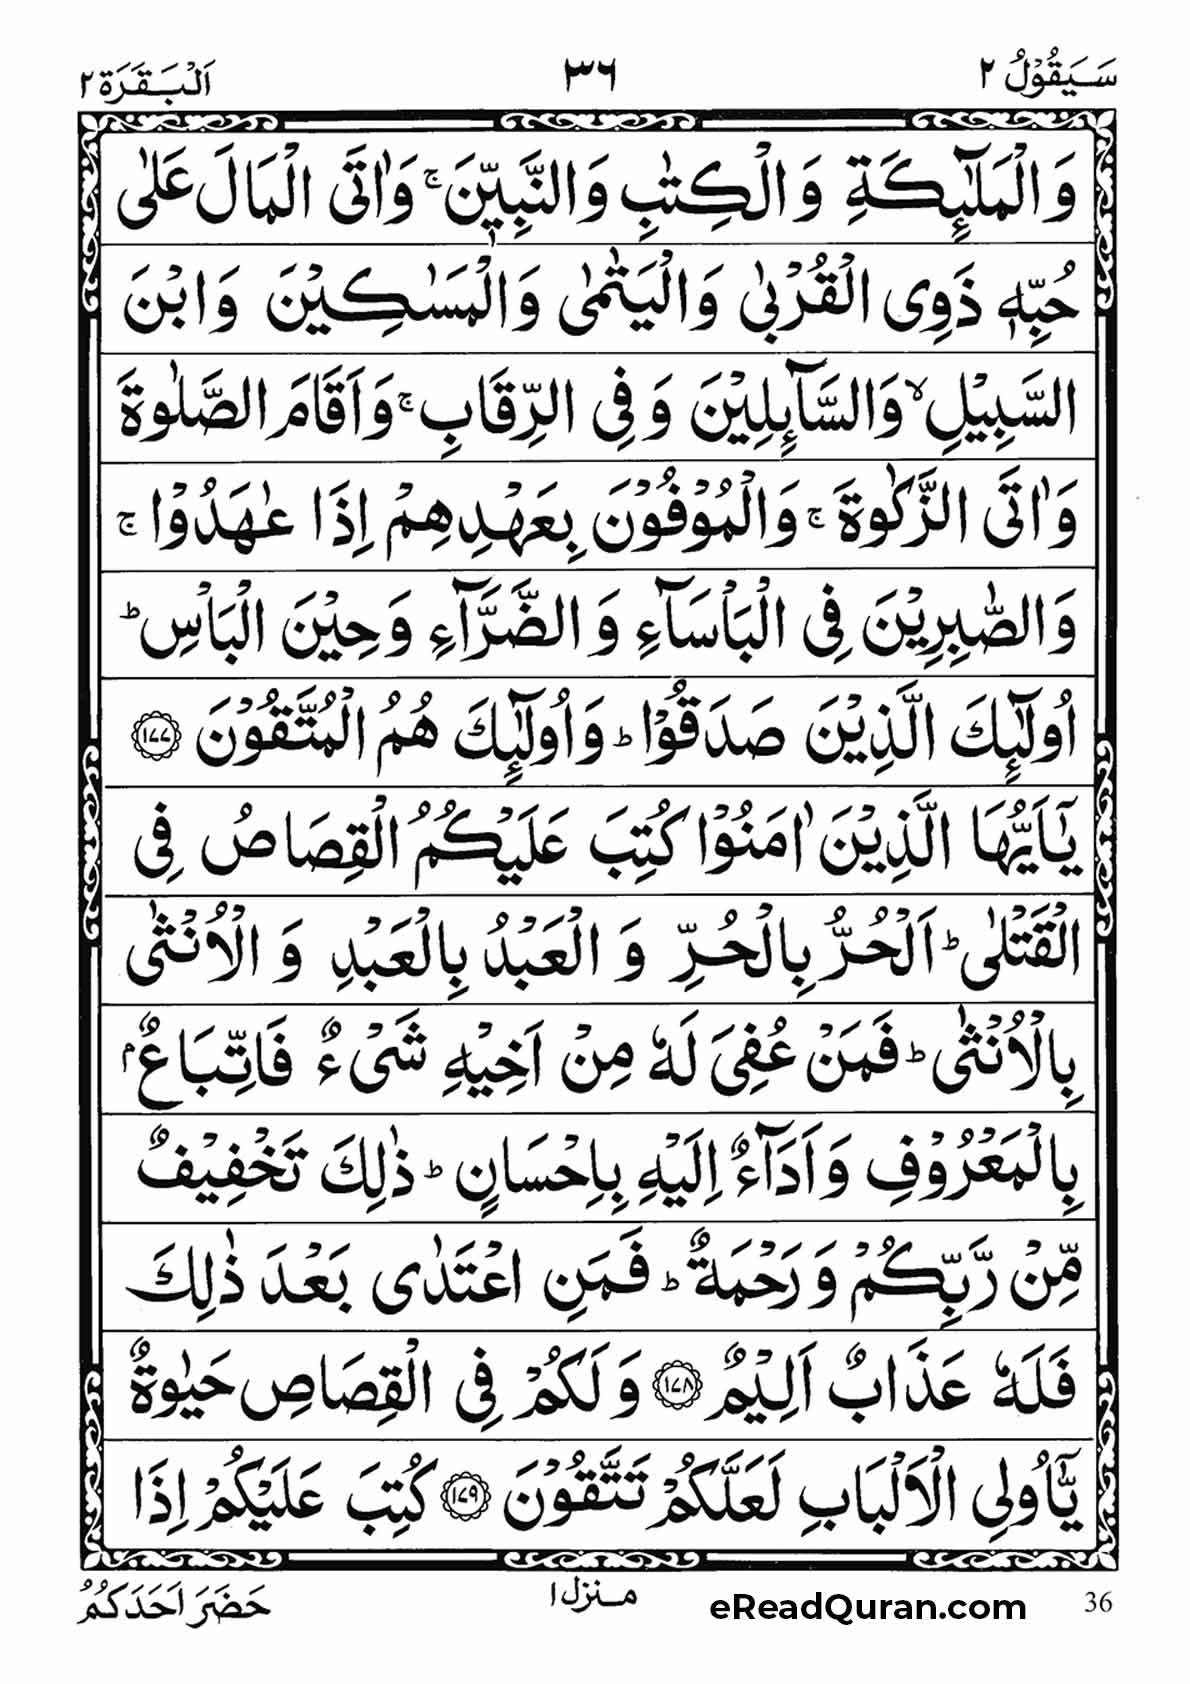 سَيَقُوْلُ ٢ ٣٦ اَلْبَقَرَة ٢
وَالْمَلٰٓئِكَةِ وَالْكِتٰبِ وَالنَّبِيّٖنَ ۚ وَاٰتَى الْمَالَ عَلٰى
حُبِّهٖ ذَوِى الْقُرْبٰى وَالْيَتٰمٰى وَالْمَسٰكِيْنَ وَابْنَ
السَّبِيْلِ ۙ وَالسَّآئِلِيْنَ وَفِى الرِّقَابِ ۚ وَاَقَامَ الصَّلٰوةَ
وَاٰتَى الزَّكٰوةَ ۚ وَالْمُوْفُوْنَ بِعَهْدِهِمْ اِذَا عٰهَدُوْا ۚ
وَالصّٰبِرِيْنَ فِى الْبَاْسَآءِ وَالضَّرَّآءِ وَحِيْنَ الْبَاْسِ ؕ
اُولٰٓئِكَ الَّذِيْنَ صَدَقُوْا ؕ وَاُولٰٓئِكَ هُمُ الْمُتَّقُوْنَ ١٧٧
يٰۤاَيُّهَا الَّذِيْنَ اٰمَنُوْا كُتِبَ عَلَيْكُمُ الْقِصَاصُ فِى
الْقَتْلٰى ؕ اَلْحُرُّ بِالْحُرِّ وَالْعَبْدُ بِالْعَبْدِ وَالْاُنْثٰى
بِالْاُنْثٰى ؕ فَمَنْ عُفِىَ لَهٗ مِنْ اَخِيْهِ شَىْءٌ فَاتِّبَاعٌ ۢ
بِالْمَعْرُوْفِ وَاَدَآءٌ اِلَيْهِ بِاِحْسَانٍ ؕ ذٰلِكَ تَخْفِيْفٌ
مِّنْ رَّبِّكُمْ وَرَحْمَةٌ ؕ فَمَنِ اعْتَدٰى بَعْدَ ذٰلِكَ
فَلَهٗ عَذَابٌ اَلِيْمٌ ١٧٨ وَلَكُمْ فِى الْقِصَاصِ حَيٰوةٌ
يّٰۤاُولِى الْاَلْبَابِ لَعَلَّكُمْ تَتَّقُوْنَ ١٧٩ كُتِبَ عَلَيْكُمْ اِذَا
حَضَرَ اَحَدَكُمُ
منزل ١
eReadQuran.com
36